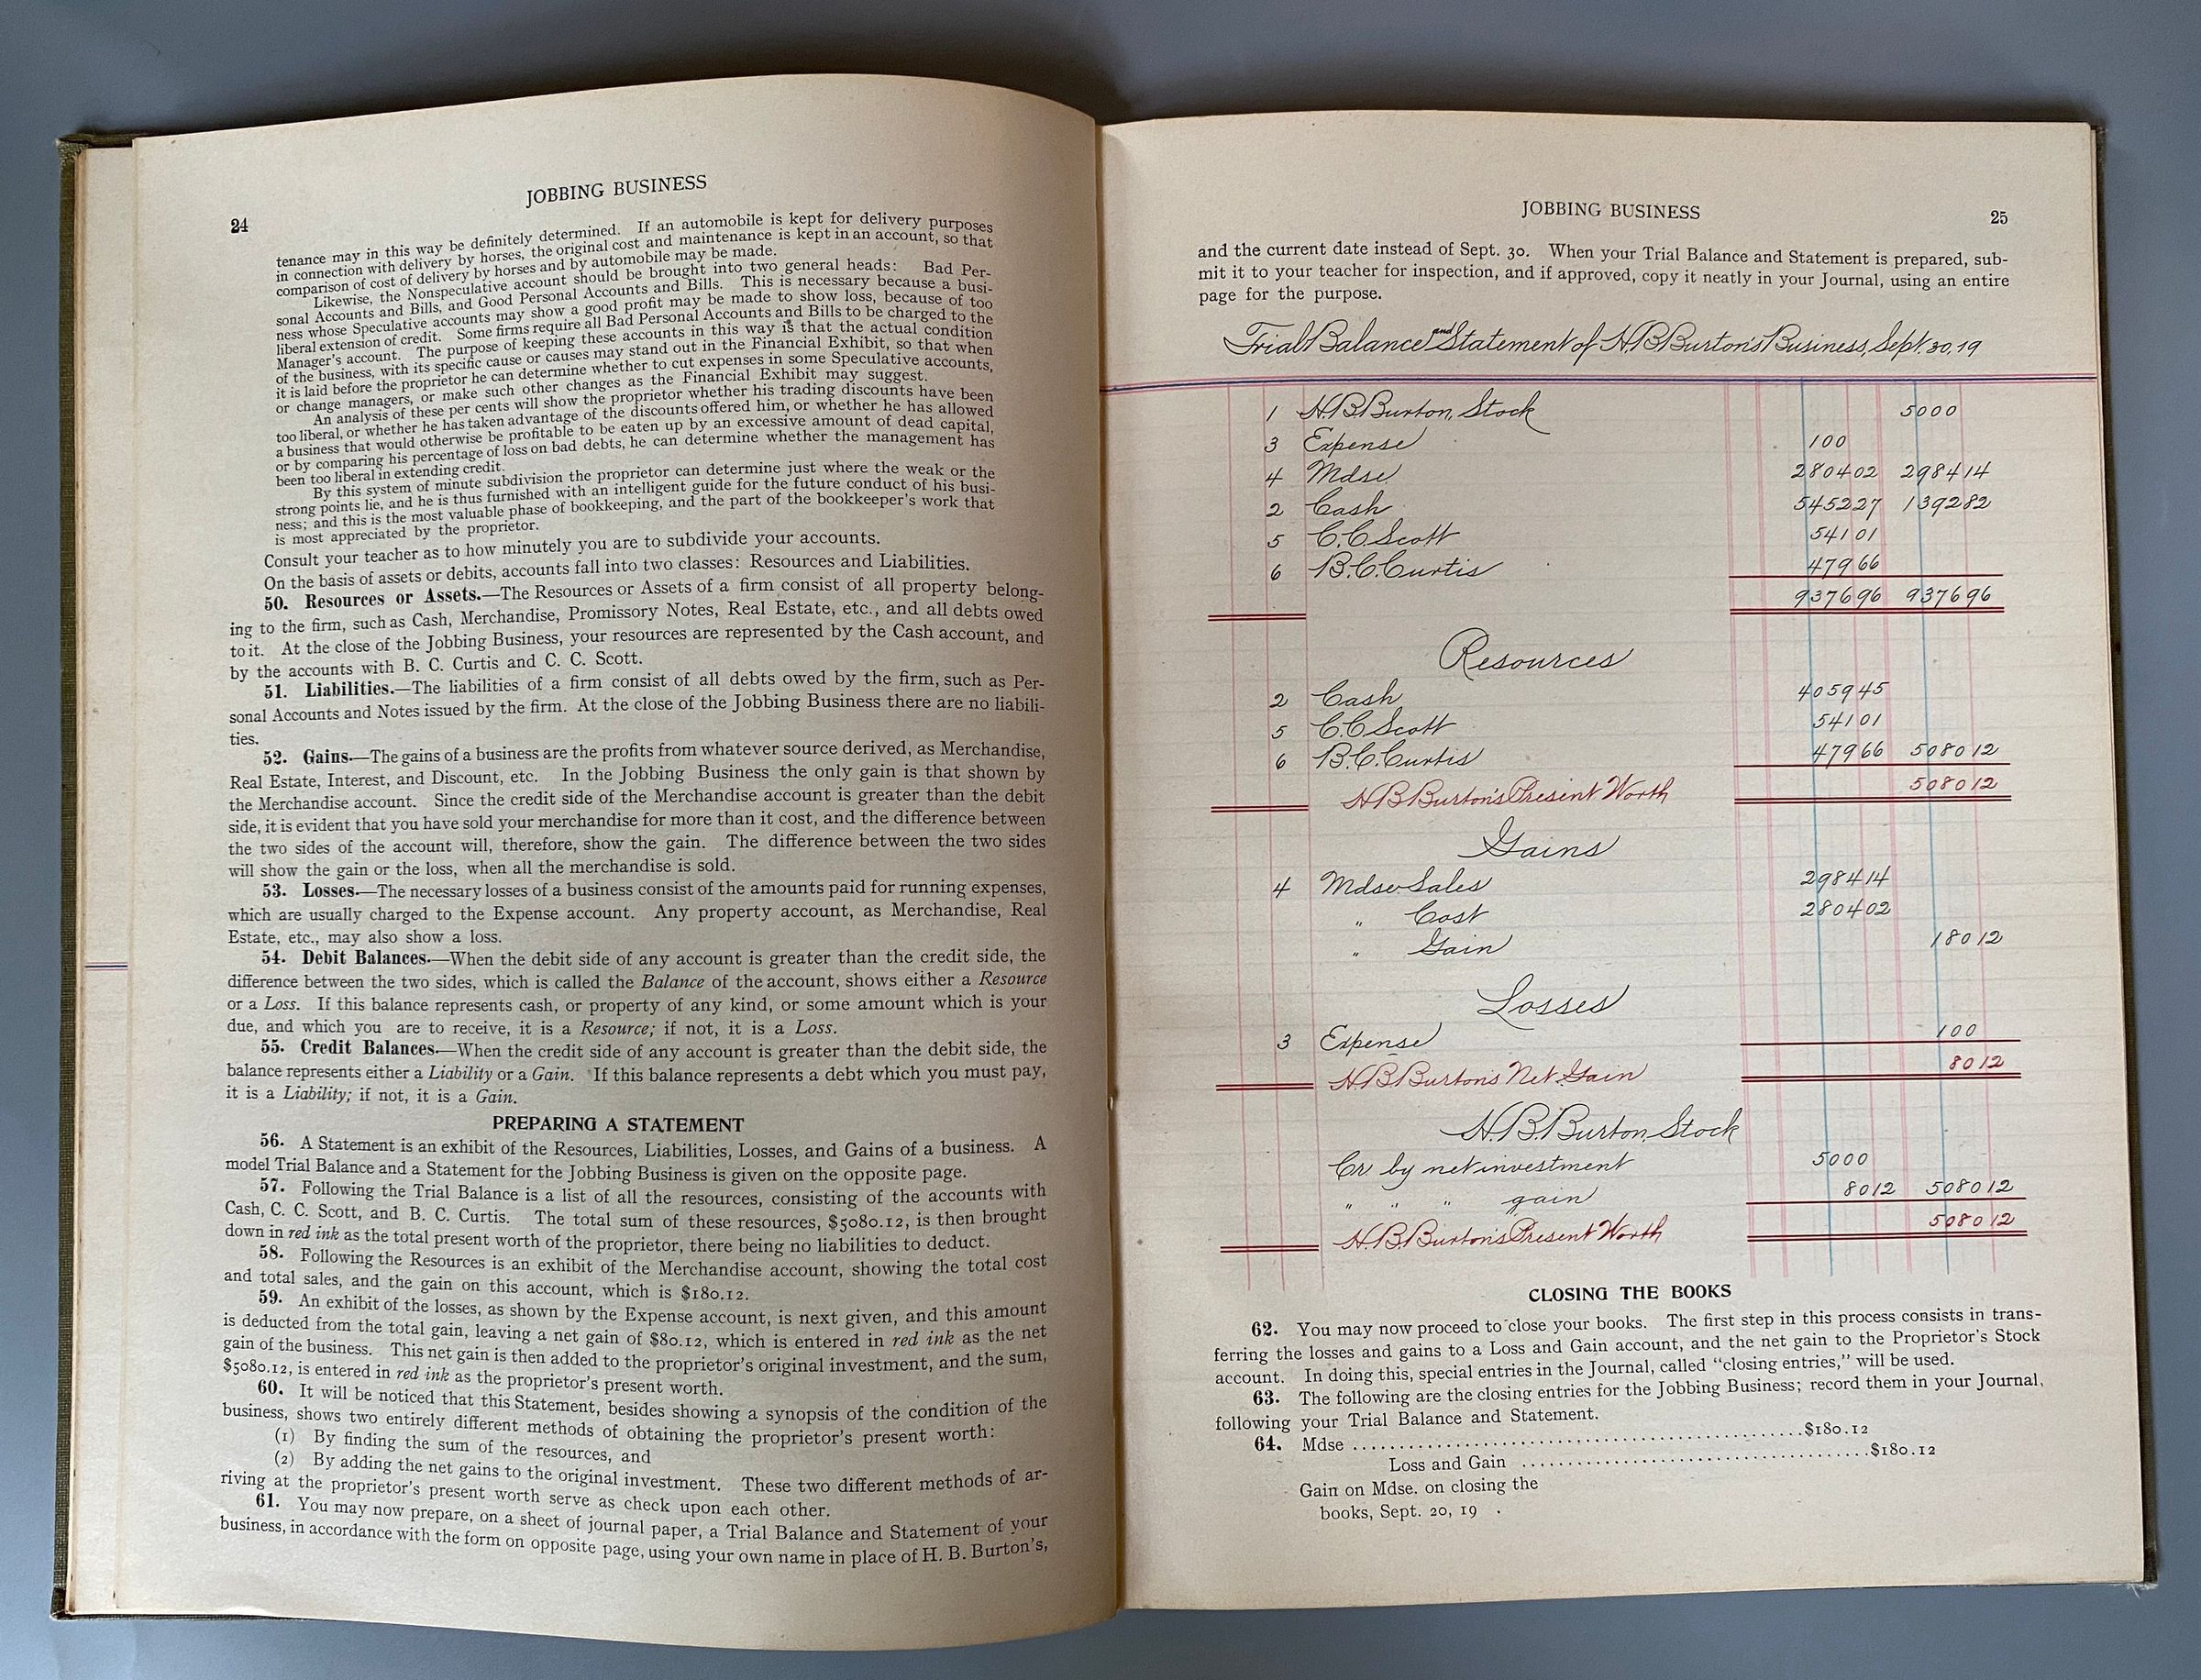 JOBBING BUSINESS
24
tenance may in this way be definitely determined. If an automobile is kept for delivery purposes
in connection with delivery by horses, the original cost and maintenance is kept in an account, so that
comparison of cost of delivery by horses and by automobile may be made.
Likewise, the Nonspeculative account should be brought into two general heads: Bad Per-
sonal Accounts and Bills, and Good Personal Accounts and Bills. This is necessary because a busi-
ness whose Speculative accounts may show a good profit may be made to show loss, because of too
liberal extension of credit. Some firms require all Bad Personal Accounts and Bills to be charged to the
Manager's account. The purpose of keeping these accounts in this way is that the actual condition
of the business, with its specific cause or causes may stand out in the Financial Exhibit, so that when
it is laid before the proprietor he can determine whether to cut expenses in some Speculative accounts,
or change managers, or make such other changes as the Financial Exhibit may suggest.
An analysis of these per cents will show the proprietor whether his trading discounts have been
too liberal, or whether he has taken advantage of the discounts offered him, or whether he has allowed
a business that would otherwise be profitable to be eaten up by an excessive amount of dead capital,
or by comparing his percentage of loss on bad debts, he can determine whether the management has
been too liberal in extending credit.
By this system of minute subdivision the proprietor can determine just where the weak or the
strong points lie, and he is thus furnished with an intelligent guide for the future conduct of his busi-
ness; and this is the most valuable phase of bookkeeping, and the part of the bookkeeper's work that
is most appreciated by the proprietor.
Consult your teacher as to how minutely you are to subdivide your accounts.
On the basis of assets or debits, accounts fall into two classes: Resources and Liabilities.
50. Resources or Assets.—The Resources or Assets of a firm consist of all property belong-
ing to the firm, such as Cash, Merchandise, Promissory Notes, Real Estate, etc., and all debts owed
to it. At the close of the Jobbing Business, your resources are represented by the Cash account, and
by the accounts with B. C. Curtis and C. C. Scott.
51. Liabilities.—The liabilities of a firm consist of all debts owed by the firm, such as Per-
sonal Accounts and Notes issued by the firm. At the close of the Jobbing Business there are no liabili-
ties.
52. Gains.—The gains of a business are the profits from whatever source derived, as Merchandise,
Real Estate, Interest, and Discount, etc. In the Jobbing Business the only gain is that shown by
the Merchandise account. Since the credit side of the Merchandise account is greater than the debit
side, it is evident that you have sold your merchandise for more than it cost, and the difference between
the two sides of the account will, therefore, show the gain. The difference between the two sides
will show the gain or the loss, when all the merchandise is sold.
53. Losses.—The necessary losses of a business consist of the amounts paid for running expenses,
which are usually charged to the Expense account. Any property account, as Merchandise, Real
Estate, etc., may also show a loss.
54. Debit Balances.—When the debit side of any account is greater than the credit side, the
difference between the two sides, which is called the Balance of the account, shows either a Resource
or a Loss. If this balance represents cash, or property of any kind, or some amount which is your
due, and which you are to receive, it is a Resource; if not, it is a Loss.
55. Credit Balances.—When the credit side of any account is greater than the debit side, the
balance represents either a Liability or a Gain. If this balance represents a debt which you must pay,
it is a Liability; if not, it is a Gain.
PREPARING A STATEMENT
56. A Statement is an exhibit of the Resources, Liabilities, Losses, and Gains of a business. A
model Trial Balance and a Statement for the Jobbing Business is given on the opposite page.
57. Following the Trial Balance is a list of all the resources, consisting of the accounts with
Cash, C. C. Scott, and B. C. Curtis. The total sum of these resources, $5080.12, is then brought
down in red ink as the total present worth of the proprietor, there being no liabilities to deduct.
58. Following the Resources is an exhibit of the Merchandise account, showing the total cost
and total sales, and the gain on this account, which is $180.12.
59. An exhibit of the losses, as shown by the Expense account, is next given, and this amount
is deducted from the total gain, leaving a net gain of $80.12, which is entered in red ink as the net
gain of the business. This net gain is then added to the proprietor's original investment, and the sum,
$5080.12, is entered in red ink as the proprietor's present worth.
60. It will be noticed that this Statement, besides showing a synopsis of the condition of the
business, shows two entirely different methods of obtaining the proprietor's present worth:
(1) By finding the sum of the resources, and
(2) By adding the net gains to the original investment. These two different methods of ar-
riving at the proprietor's present worth serve as check upon each other.
61. You may now prepare, on a sheet of journal paper, a Trial Balance and Statement of your
business, in accordance with the form on opposite page, using your own name in place of H. B. Burton's,
JOBBING BUSINESS
25
and the current date instead of Sept. 30. When your Trial Balance and Statement is prepared, sub-
mit it to your teacher for inspection, and if approved, copy it neatly in your Journal, using an entire
page for the purpose.
Trial Balance and Statement of H.B.Burton's Business, Sept. 30, 19
1 H.B.Burton, Stock 5000
3 Expense 100
4 Mdse 280402 298414
2 Cash 545227 139282
5 C.C.Scott 54101
6 B.C.Curtis 47966
937696 937696
Resources
2 Cash 405945
5 C.C.Scott 54101
6 B.C.Curtis 47966 508012
H.B.Burton's Present Worth 508012
Gains
4 Mdse Sales 298414
" Cost 280402
" Gain 18012
Losses
3 Expense 100
H.B.Burton's Net Gain 8012
H.B.Burton, Stock
Cr by net investment 5000
" " " gain 8012 508012
H.B.Burton's Present Worth 508012
CLOSING THE BOOKS
62. You may now proceed to close your books. The first step in this process consists in trans-
ferring the losses and gains to a Loss and Gain account, and the net gain to the Proprietor's Stock
account. In doing this, special entries in the Journal, called "closing entries," will be used.
63. The following are the closing entries for the Jobbing Business; record them in your Journal,
following your Trial Balance and Statement.
64. Mdse ........ $180.12
Loss and Gain ........ $180.12
Gain on Mdse. on closing the
books, Sept. 20, 19 .